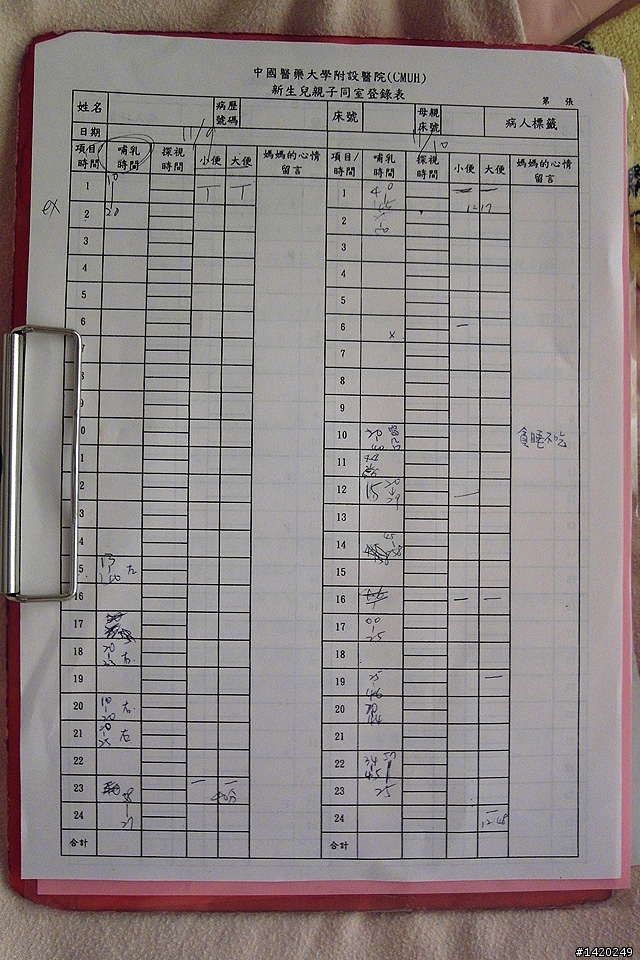 中國醫藥大學附設醫院(CMUH)
新生兒親子同室登錄表
第 張
姓名 病歷號碼 床號 母親床號 病人標籤
日期 11/9 11/10
項目/時間 哺乳時間 探視時間 小便 大便 媽媽的心情留言 項目/時間 哺乳時間 探視時間 小便 大便 媽媽的心情留言
1 10 1
ex 2 20 2
3 3
4 4
5 5
6 6 x
7 7
8 8
9 9
0 10 20 貪睡不吃
1 11
2 12 15 20 29
3 13
4 14 45
5 13 左 15
16 16
17 17 00 25
18 20 右 18
19 19 25
20 10 20 右 20
21 左 21
22 22 34 45
23 40分 23 25
24 27 24 12:48
合計 合計
#1420249